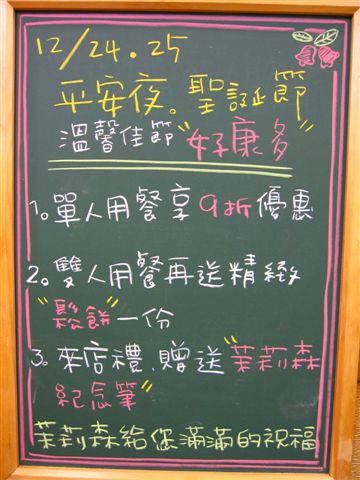 12/24.25
平安夜。聖誕節
溫馨佳節"好康多"
1。單人用餐享9折優惠
2。雙人用餐再送精緻
"鬆餅"一份
3。來店禮.贈送"茉莉森
紀念筆"
茉莉森給您滿滿的祝福